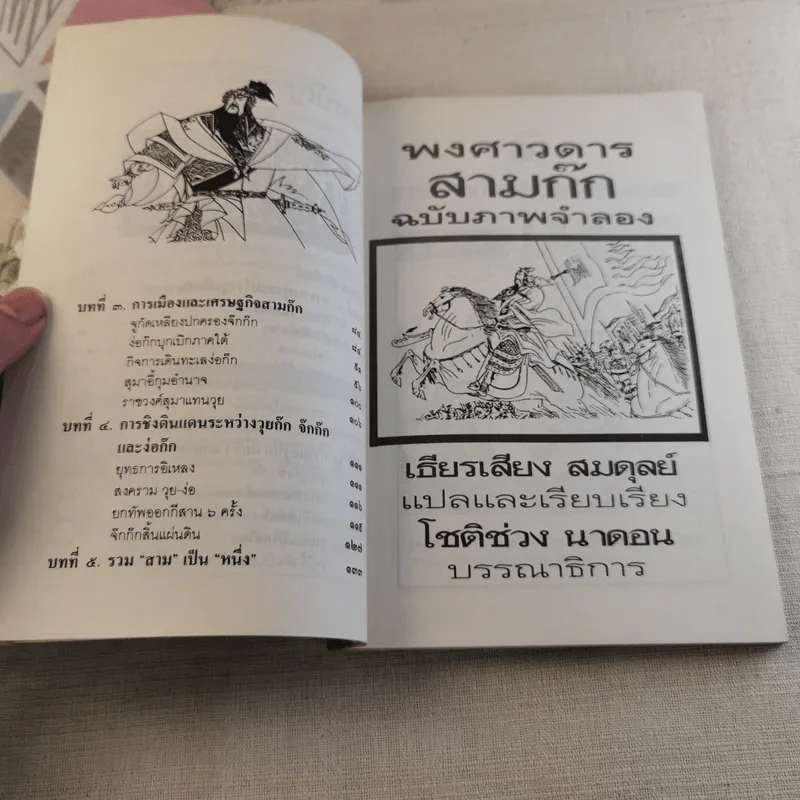 บทที่ ๓. การเมืองและเศรษฐกิจสามก๊ก ๘๔
จูกัดเหลียงปกครองจ๊กก๊ก ๘๔
ง่อก๊กบุกเบิกภาคใต้ ๕๑
กิจการเดินทะเลง่อก๊ก ๕๖
สุมาอี้กุมอำนาจ ๑๐๐
ราชวงศ์สุมาแทนวุย ๑๐๖
บทที่ ๔. การชิงดินแดนระหว่างวุยก๊ก จ๊กก๊ก
และง่อก๊ก ๑๑๑
ยุทธการอิเหลง ๑๑๑
สงคราม วุย-ง่อ ๑๑๖
ยกทัพออกกีสาน ๖ ครั้ง ๑๑๕
จ๊กก๊กสิ้นแผ่นดิน ๑๒๘
บทที่ ๕. รวม “สาม” เป็น “หนึ่ง” ๑๓๓
พงศาวดาร
สามก๊ก
ฉบับภาพจำลอง
เธียรเสียง สมดุลย์
แปลและเรียบเรียง
โชติช่วง นาดอน
บรรณาธิการ